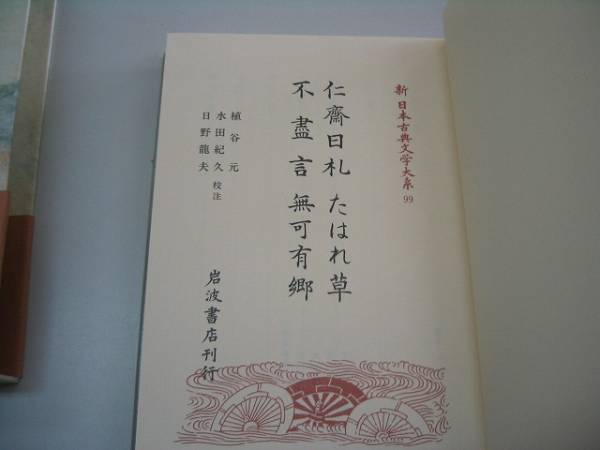 新日本古典文学大系 99
仁齋日札 たはれ草
不盡言 無可有郷
植谷元
水田紀久 校注
日野龍夫
岩波書店刊行